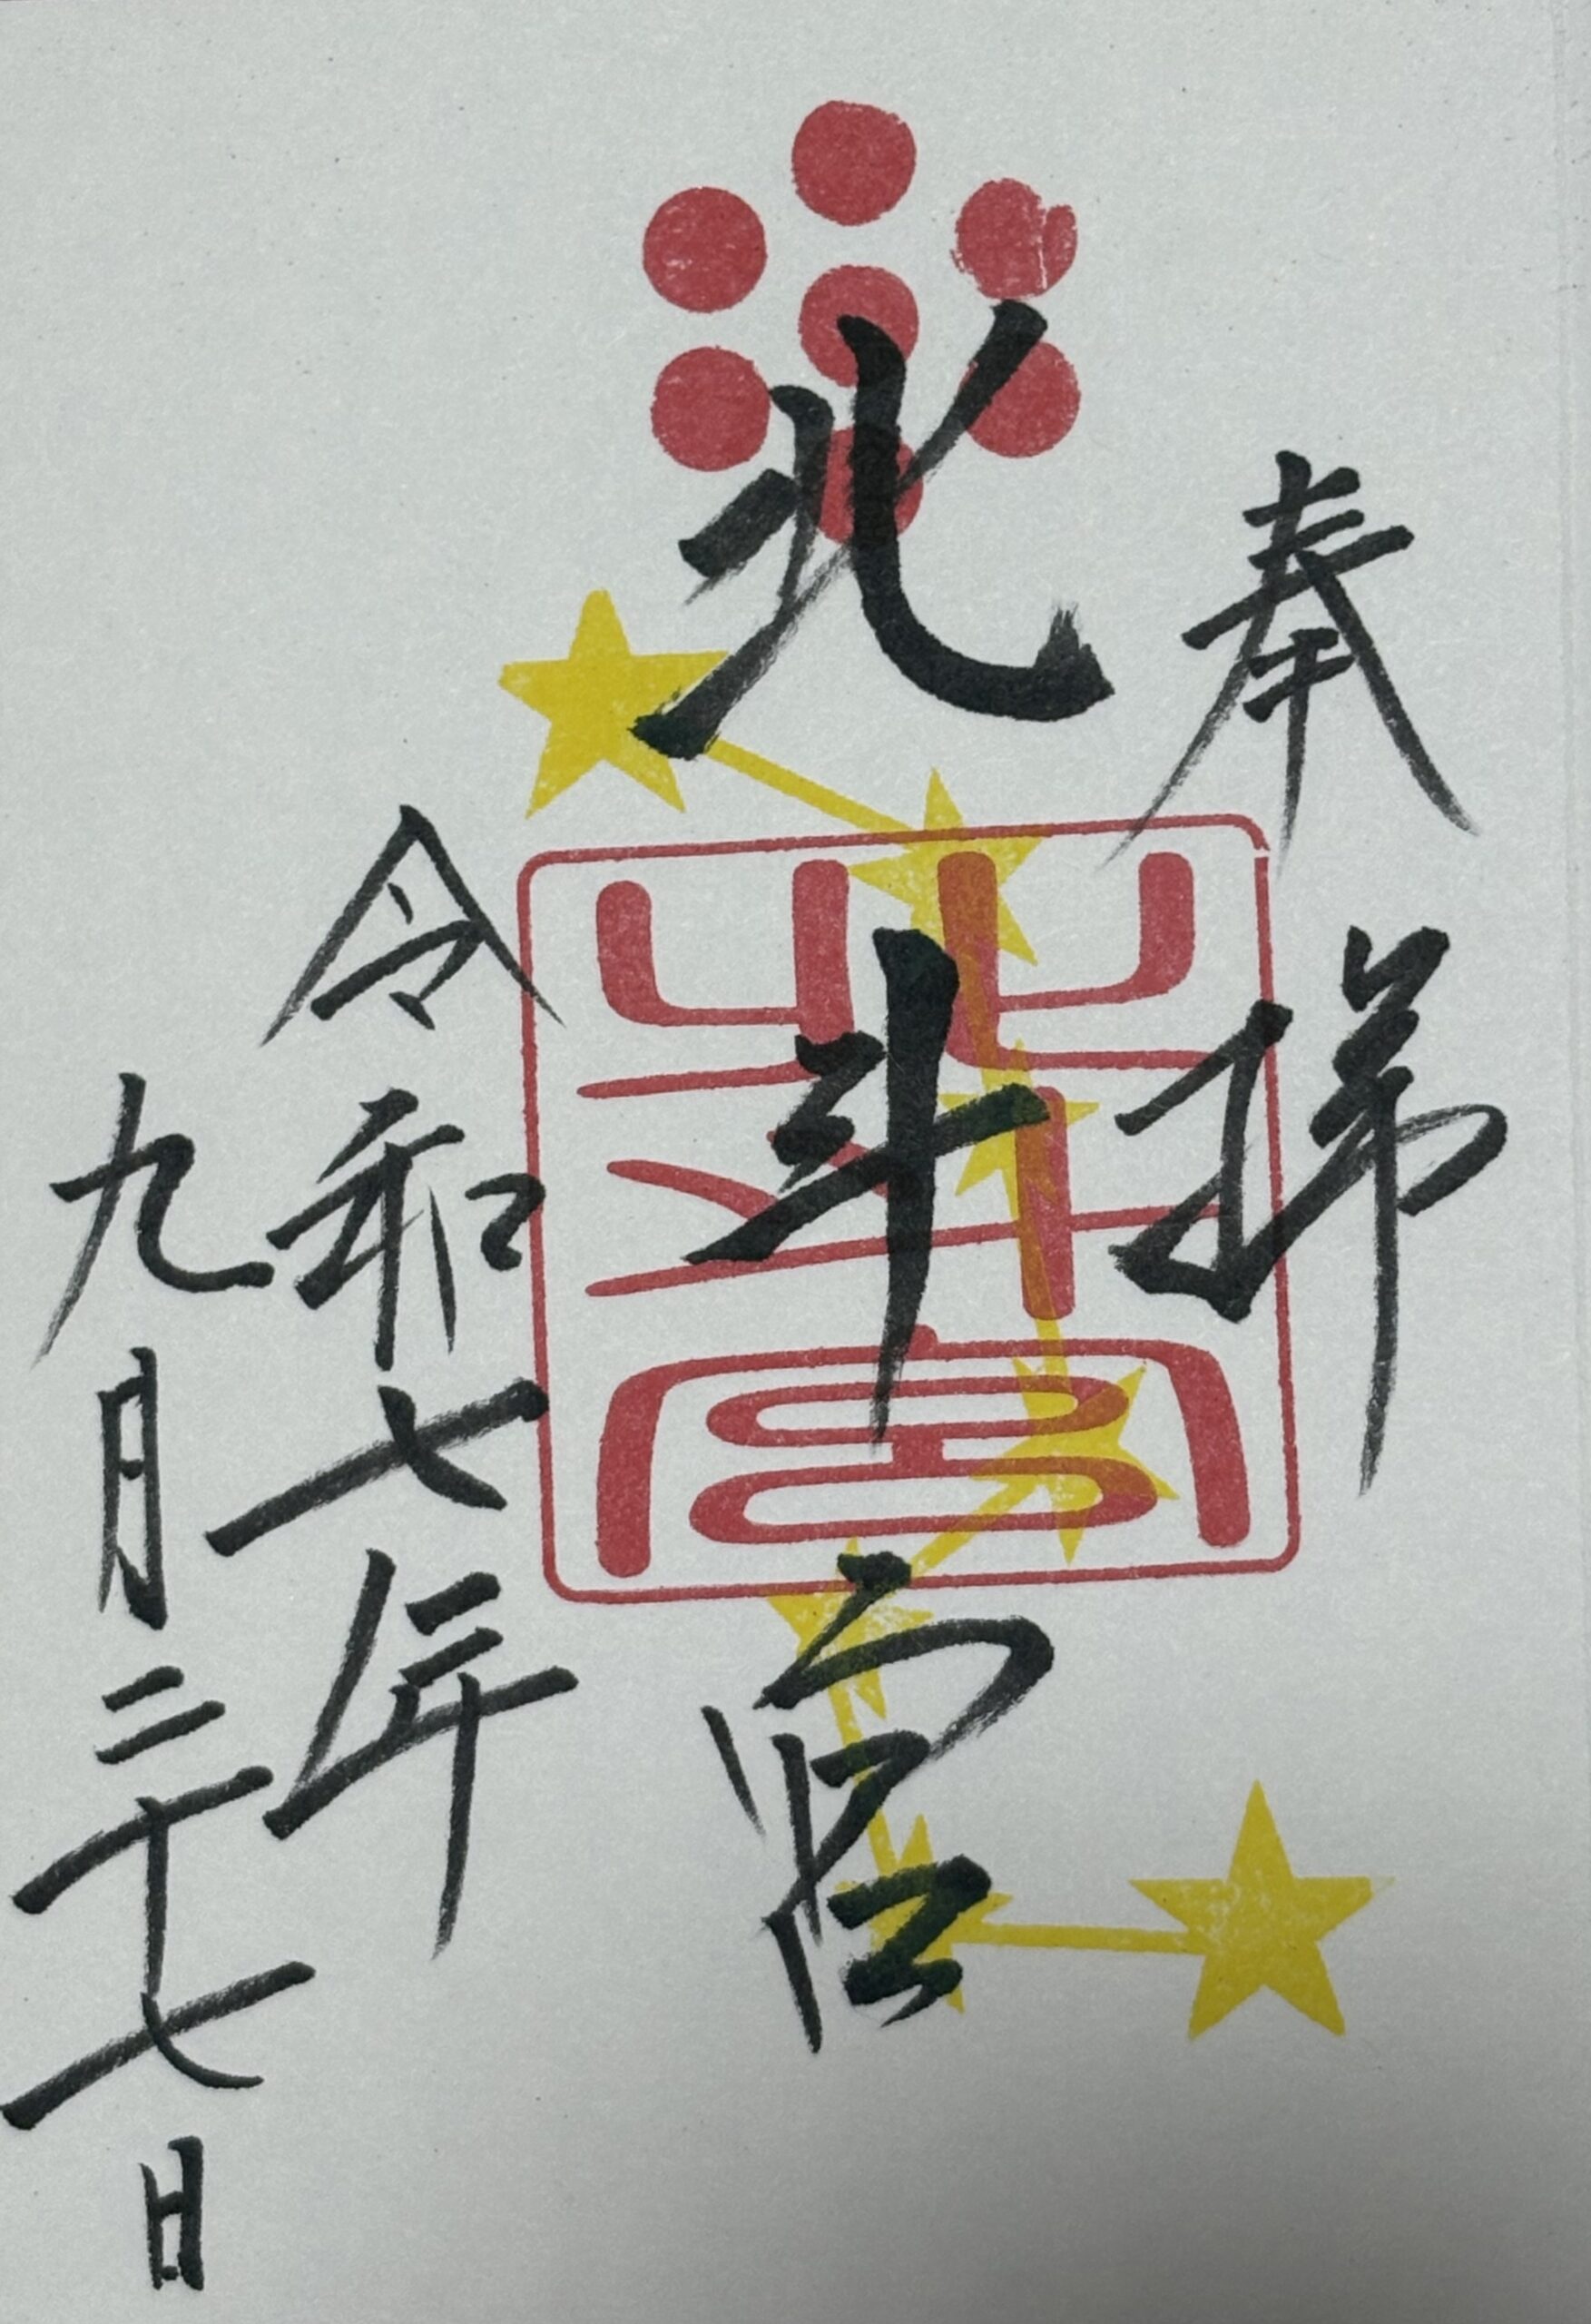 奉拝
北斗宮
北斗宮
令和七年
九月二十七日